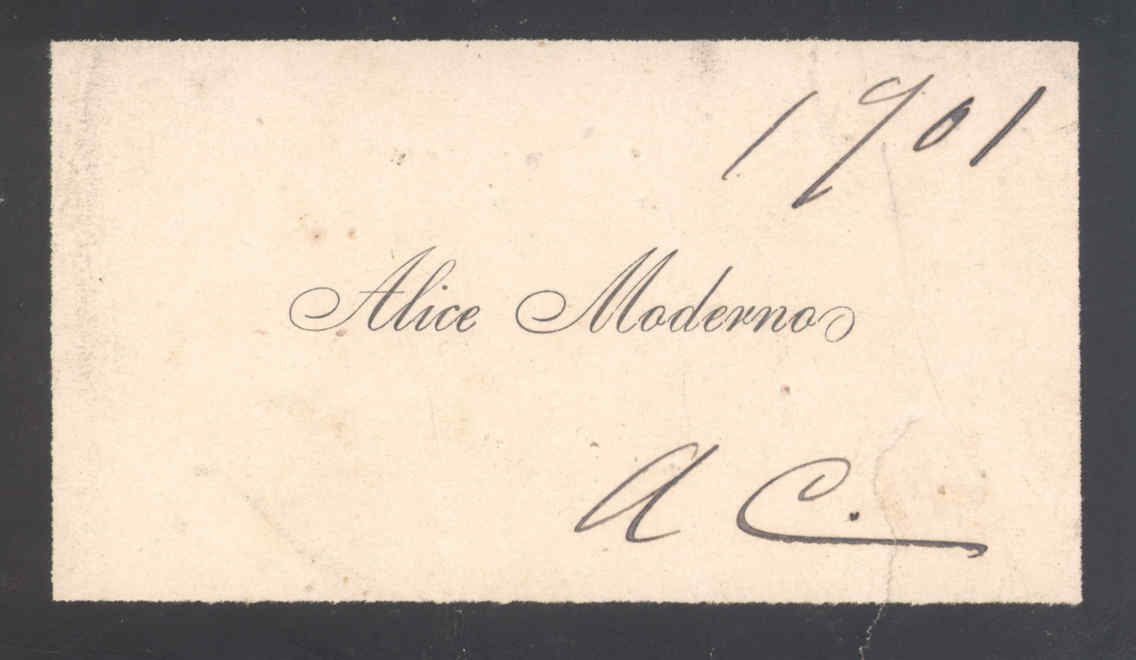 1901
Alice Moderno
A C.